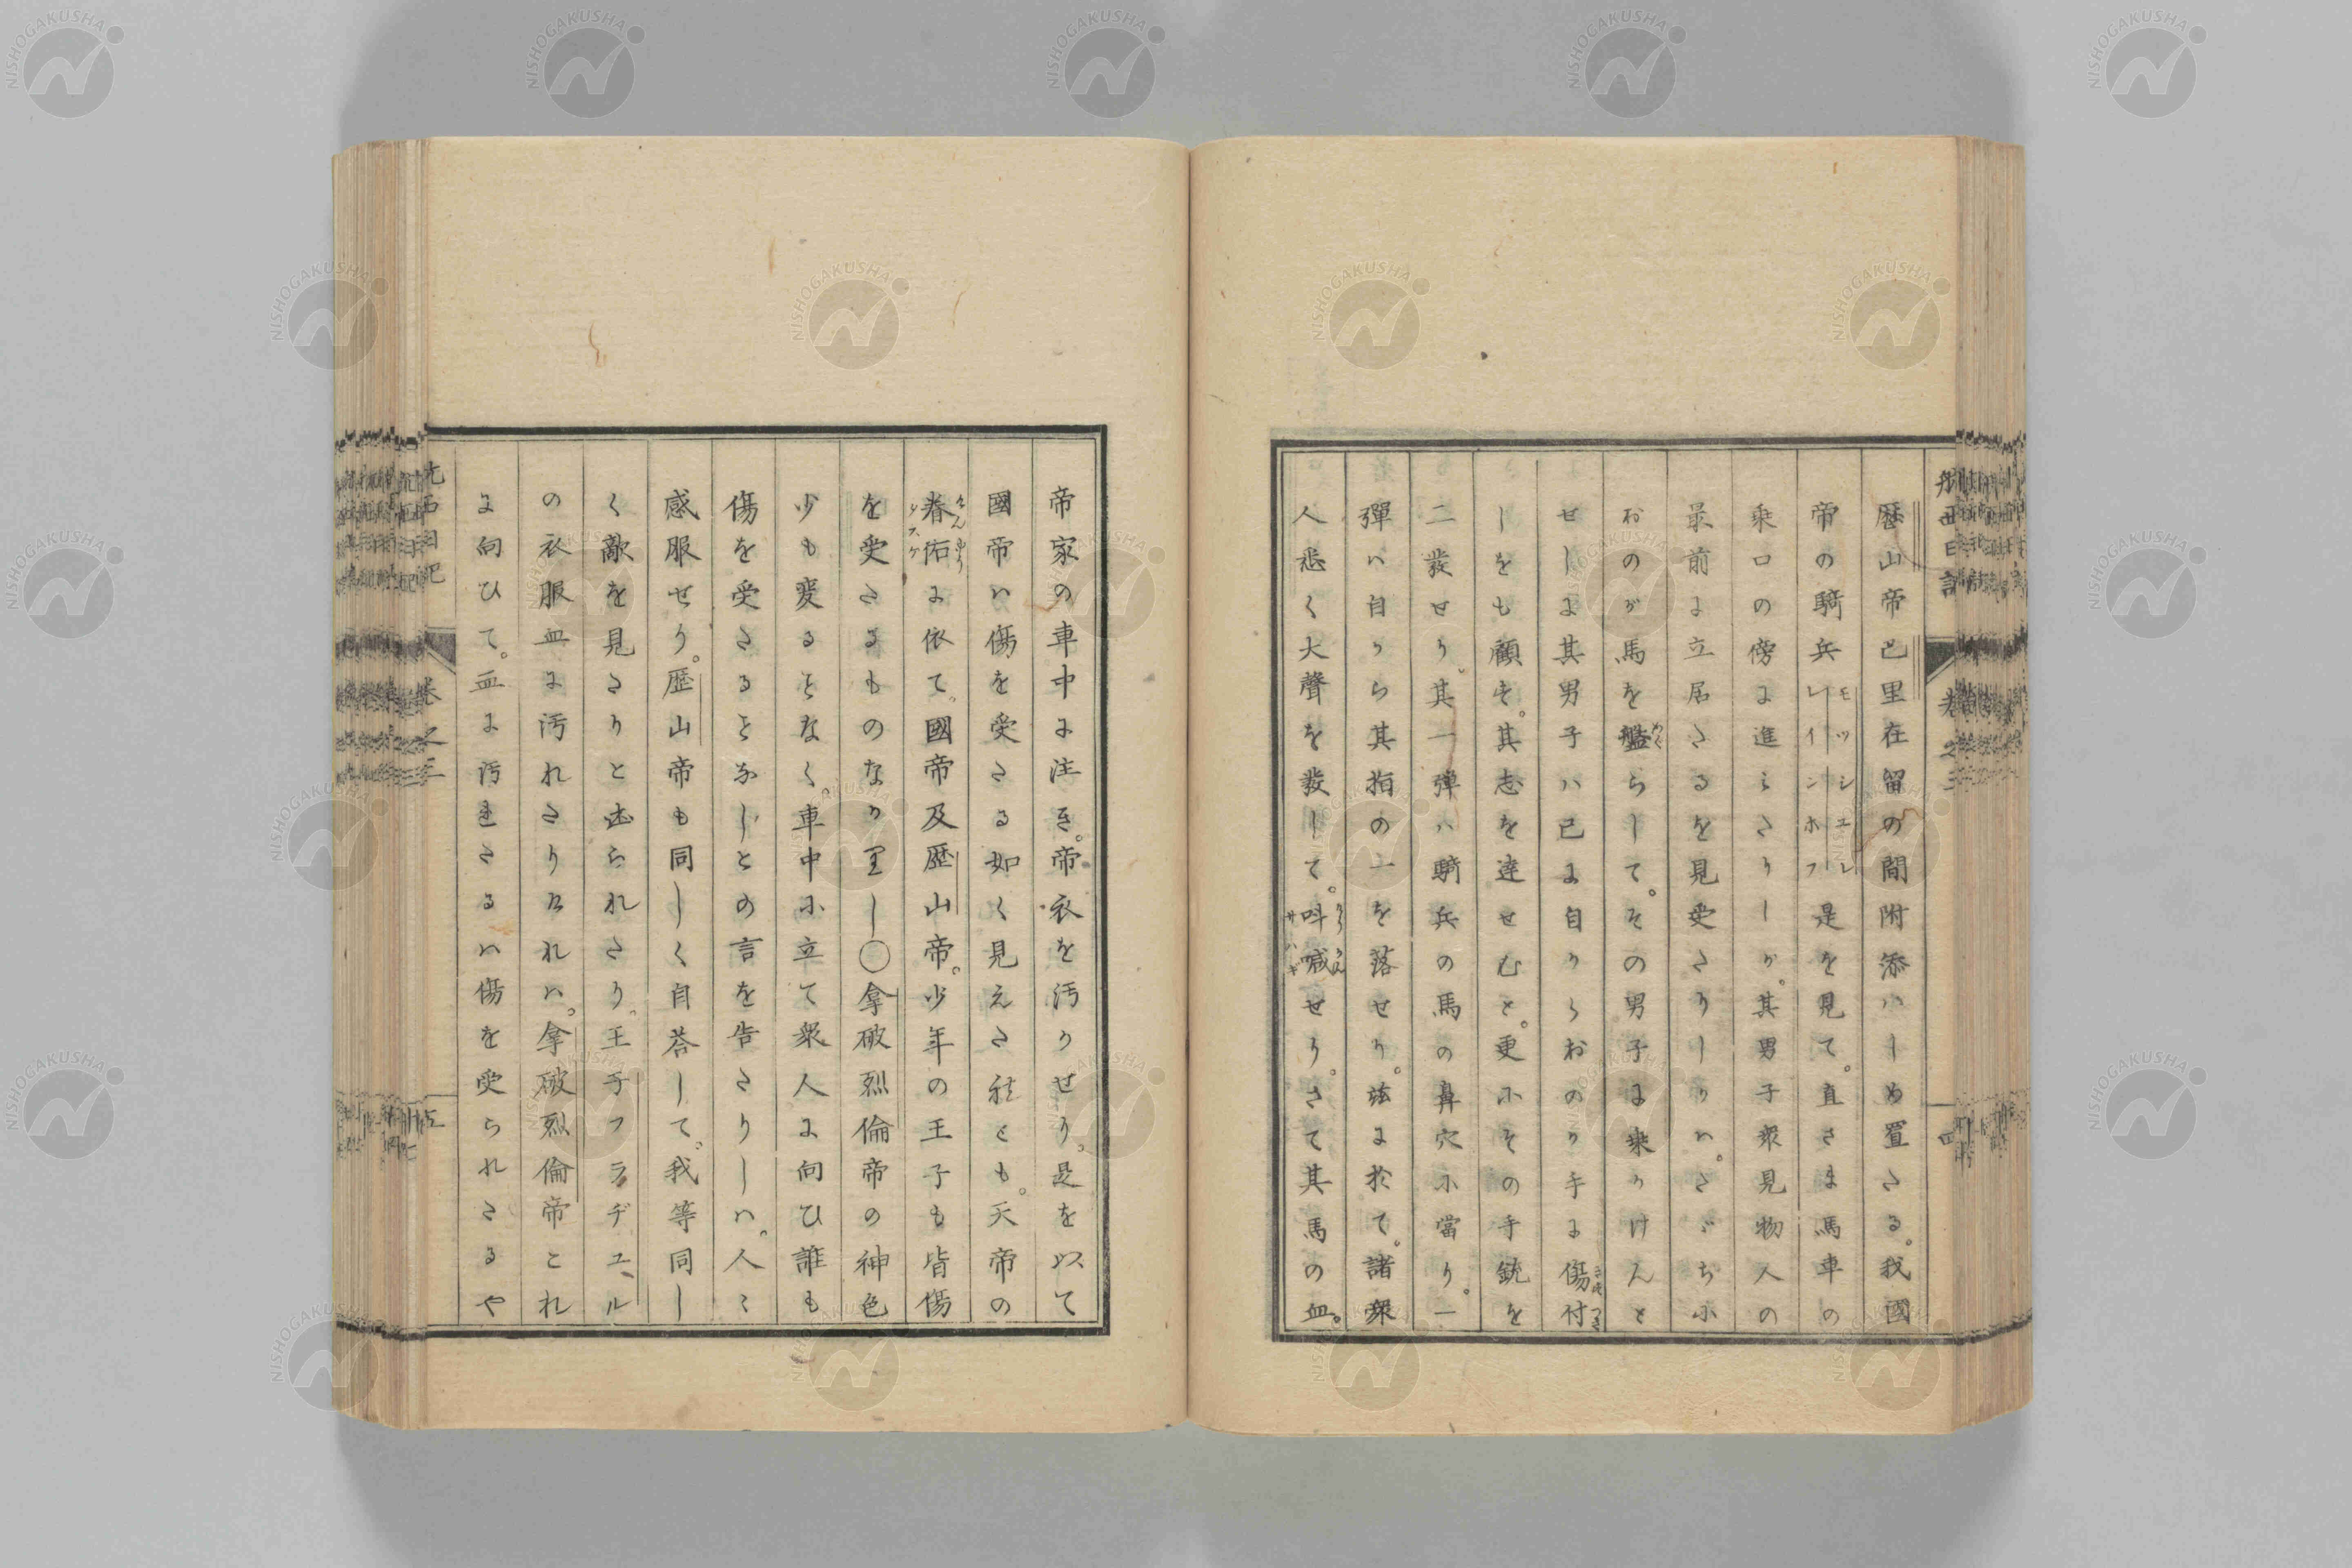 歴山帝巴里在留の間附添ハしめ置さる。我國
帝の騎兵モッシエレレインホフ是を見て。直さま馬車の
乗口の傍に進ミさりしが。其男子衆見物人の
最前に立居さるを見受さりしかハ。さゞちに
おのが馬を艦らして。その男子に乗りけんと
せしに其男子ハ已に自からおのが手に傷付
しをも顧ず。其志を達せむと。更にその手銃を
二發せり。其一弾ハ騎兵の馬の鼻穴に當り。一
彈ハ自から其指の一を落せり。茲に於て。諸衆
人悉く大聲を發して。叫喊せり。さて其馬の血。
帝家の車中に注き。帝衣を汚かせり。是を以て
國帝ハ傷を受さる如く見えさ
れとも。天帝の
眷佑に依て。國帝及歴山帝。少年の王子も皆傷
を受さるものなかりし〇拿破烈倫帝の神色
少も変ることなく。車中に立て衆人に向ひ誰も
傷を受さることなしとの言を告さりしハ。人〻
感服せり。歴山帝も同しく自若して。我等同し
く敵を見さりと述られさり。王子フラヂユル
の衣服血に汚れさりけれハ。拿破烈倫帝これ
に向ひて。血に汚れさるハ傷を受られさるや
卷之三
四
五
NISHOGAKUSHA